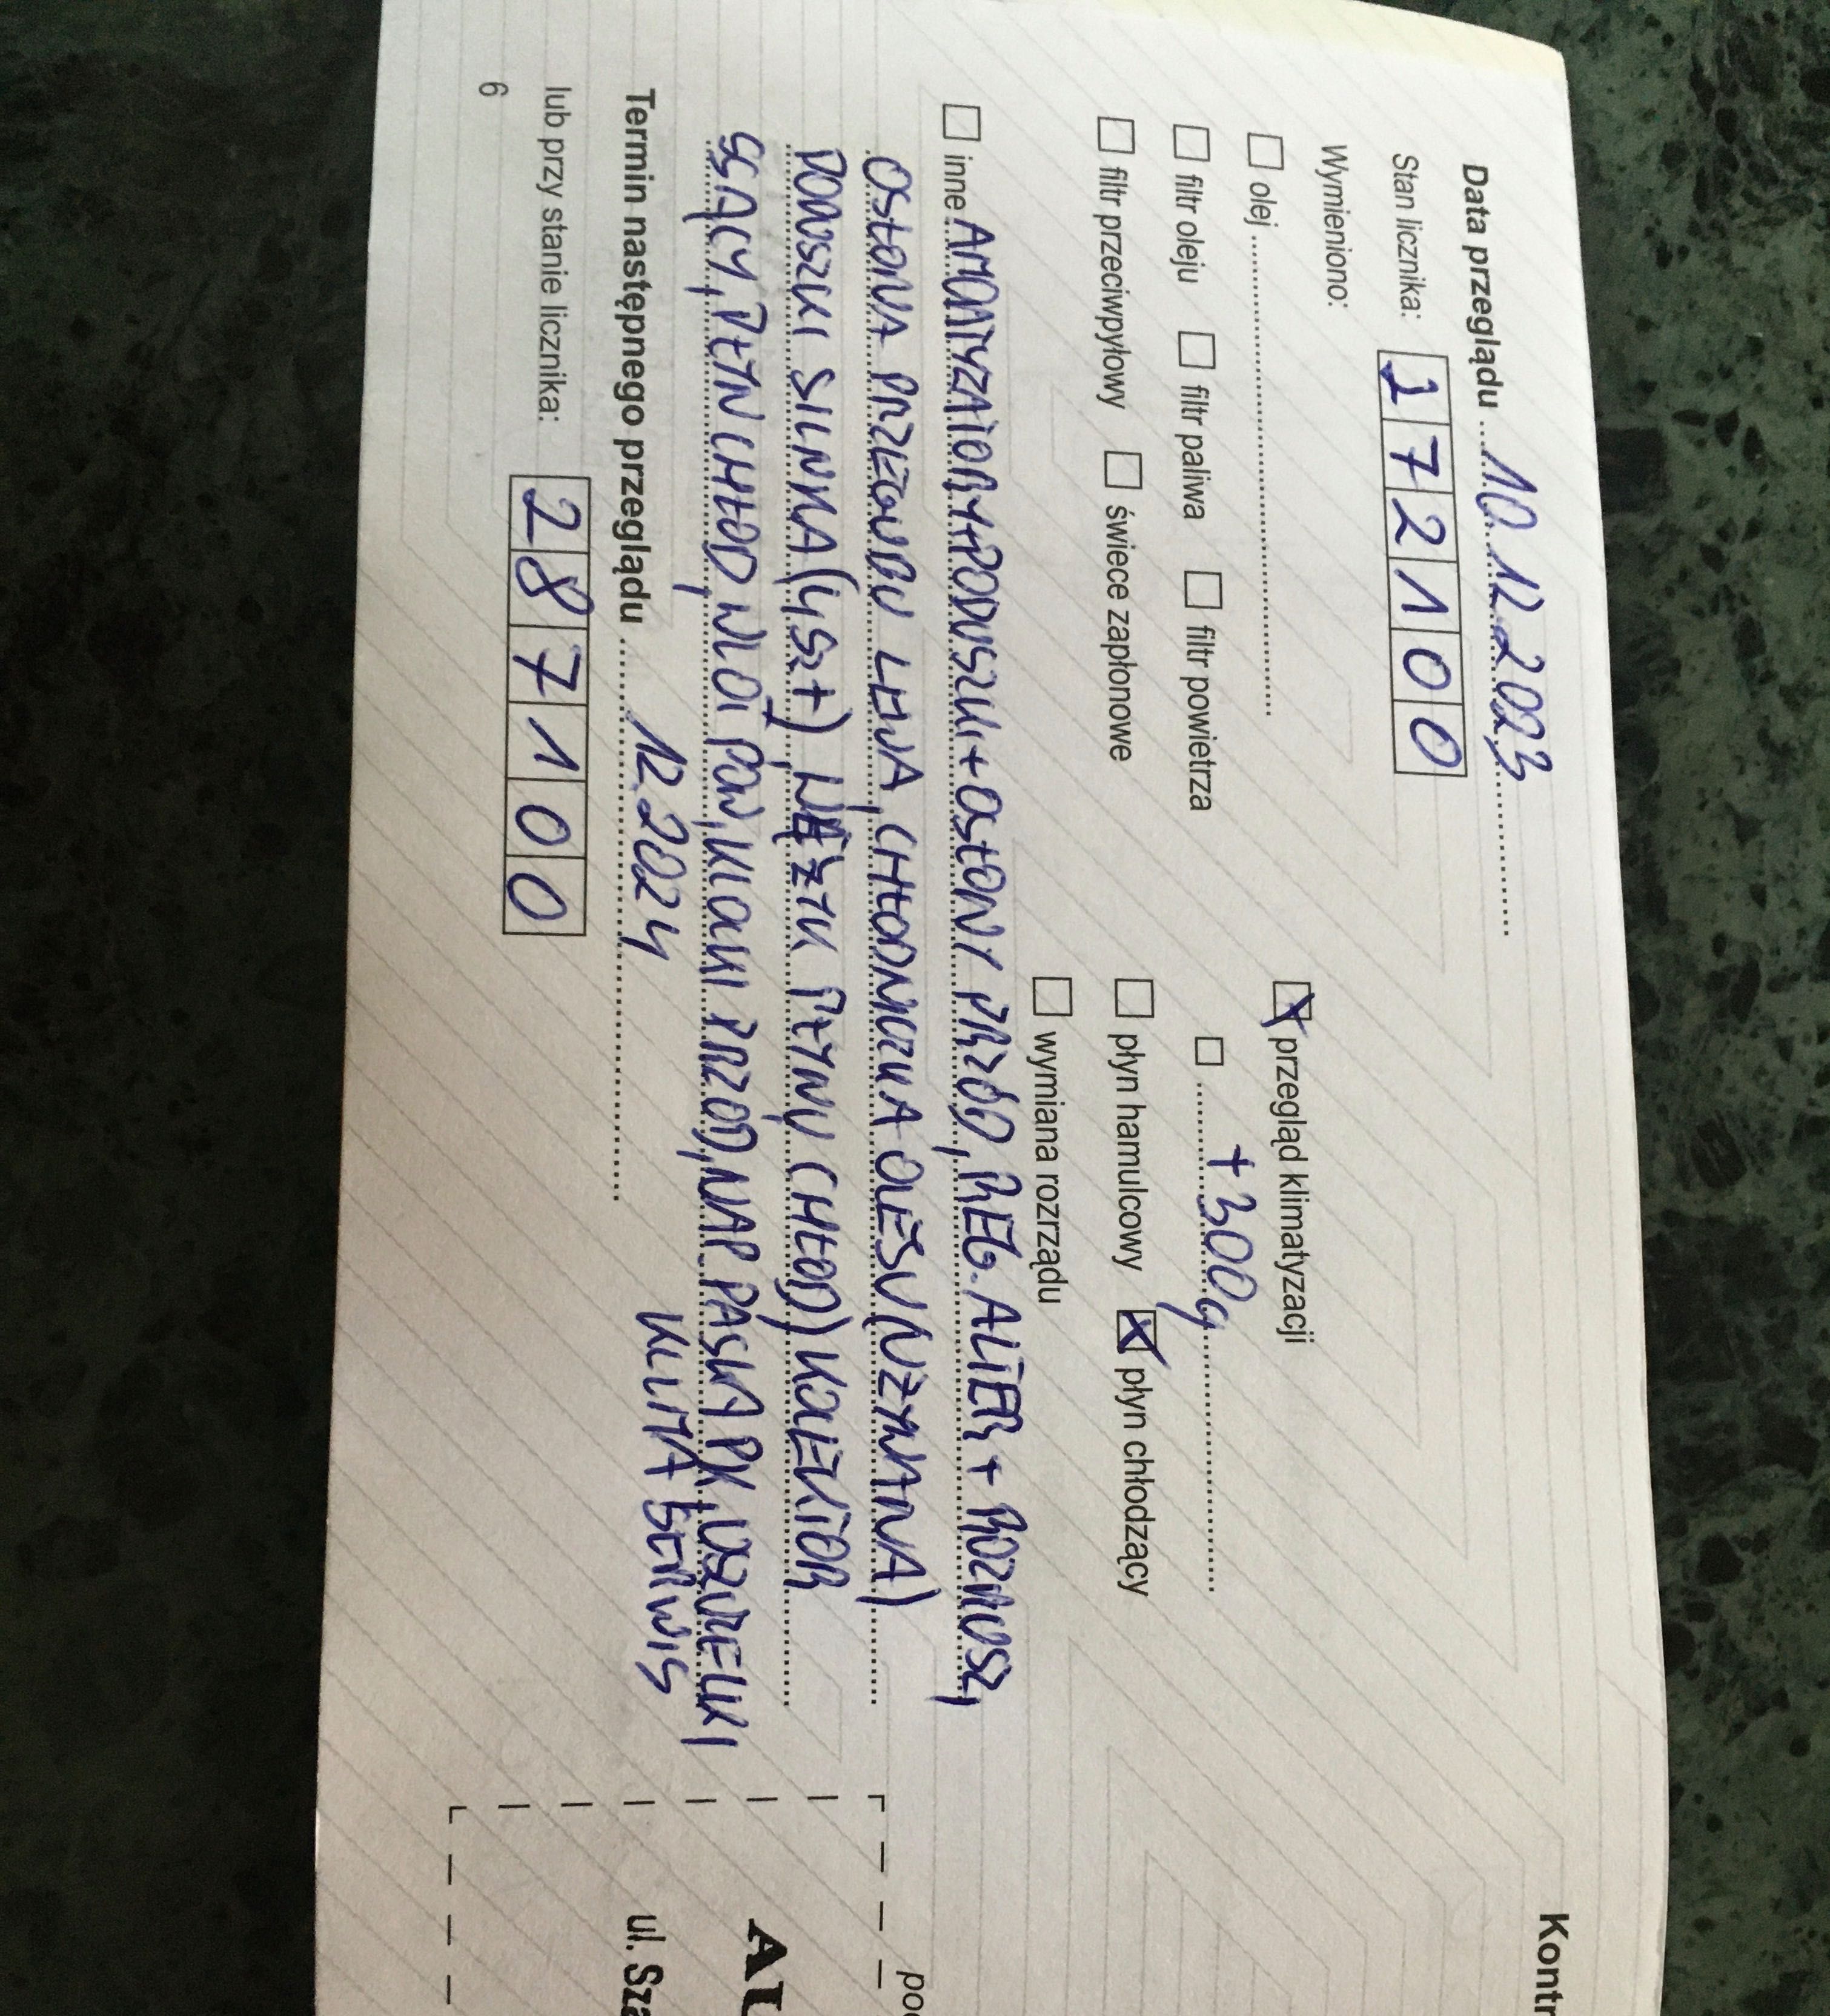 Data przeglądu 10.12.2023
Stan licznika: 272100
Wymieniono:
olej
przegląd klimatyzacji
filtr oleju filtr paliwa filtr powietrza
+300g
filtr przeciwpyłowy świece zapłonowe
płyn hamulcowy płyn chłodzący
wymiana rozrządu
inne AMORTYZATORY+PODUSZKI+OSŁONY PRZÓD, REG. ALTER + ROZRUSZ,
OSŁONA PRZEGUBU LEWA, CHŁODNICZKA OLEJU (UŻYWANA)
PODUSZKI SILNIKA (4SZT), WĘŻYK PŁYNU CHŁOD, KOLEKTOR
SSĄCY, PŁYN CHŁOD, WLOT POW, KLOCKI PRZÓD, NAP PASKA PK, USZCZELKI
Termin następnego przeglądu 12.2024
KLIMA SERWIS
lub przy stanie licznika: 287100
6
Kontr
AU
ul. Sza